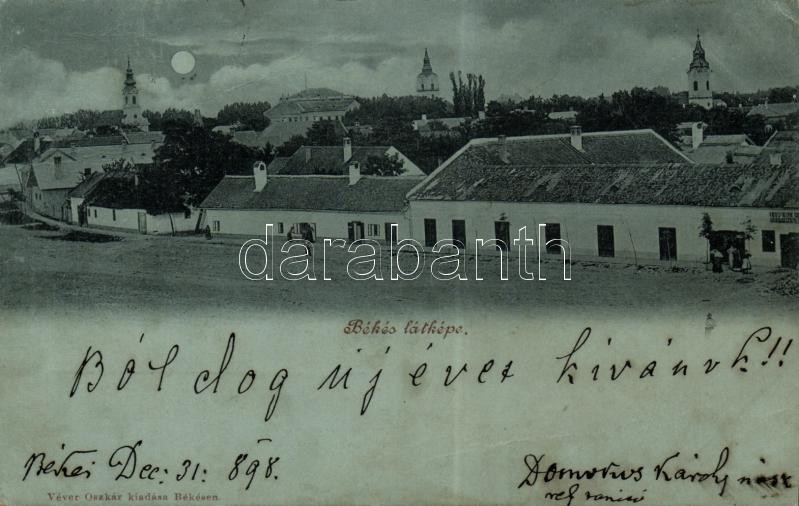 darabanth
Békés látképe.
Ból dog új évet kivánok!!
Békés Dec: 31: 898.
Domokos Károly
Véver Oszkár kiadása Békésen.